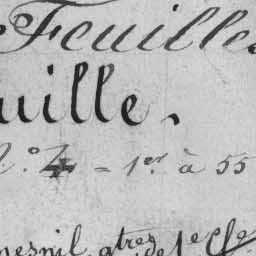 Feuille
uille.
º. 4 = 1er. à 55
mesnil qtres de 1e cl